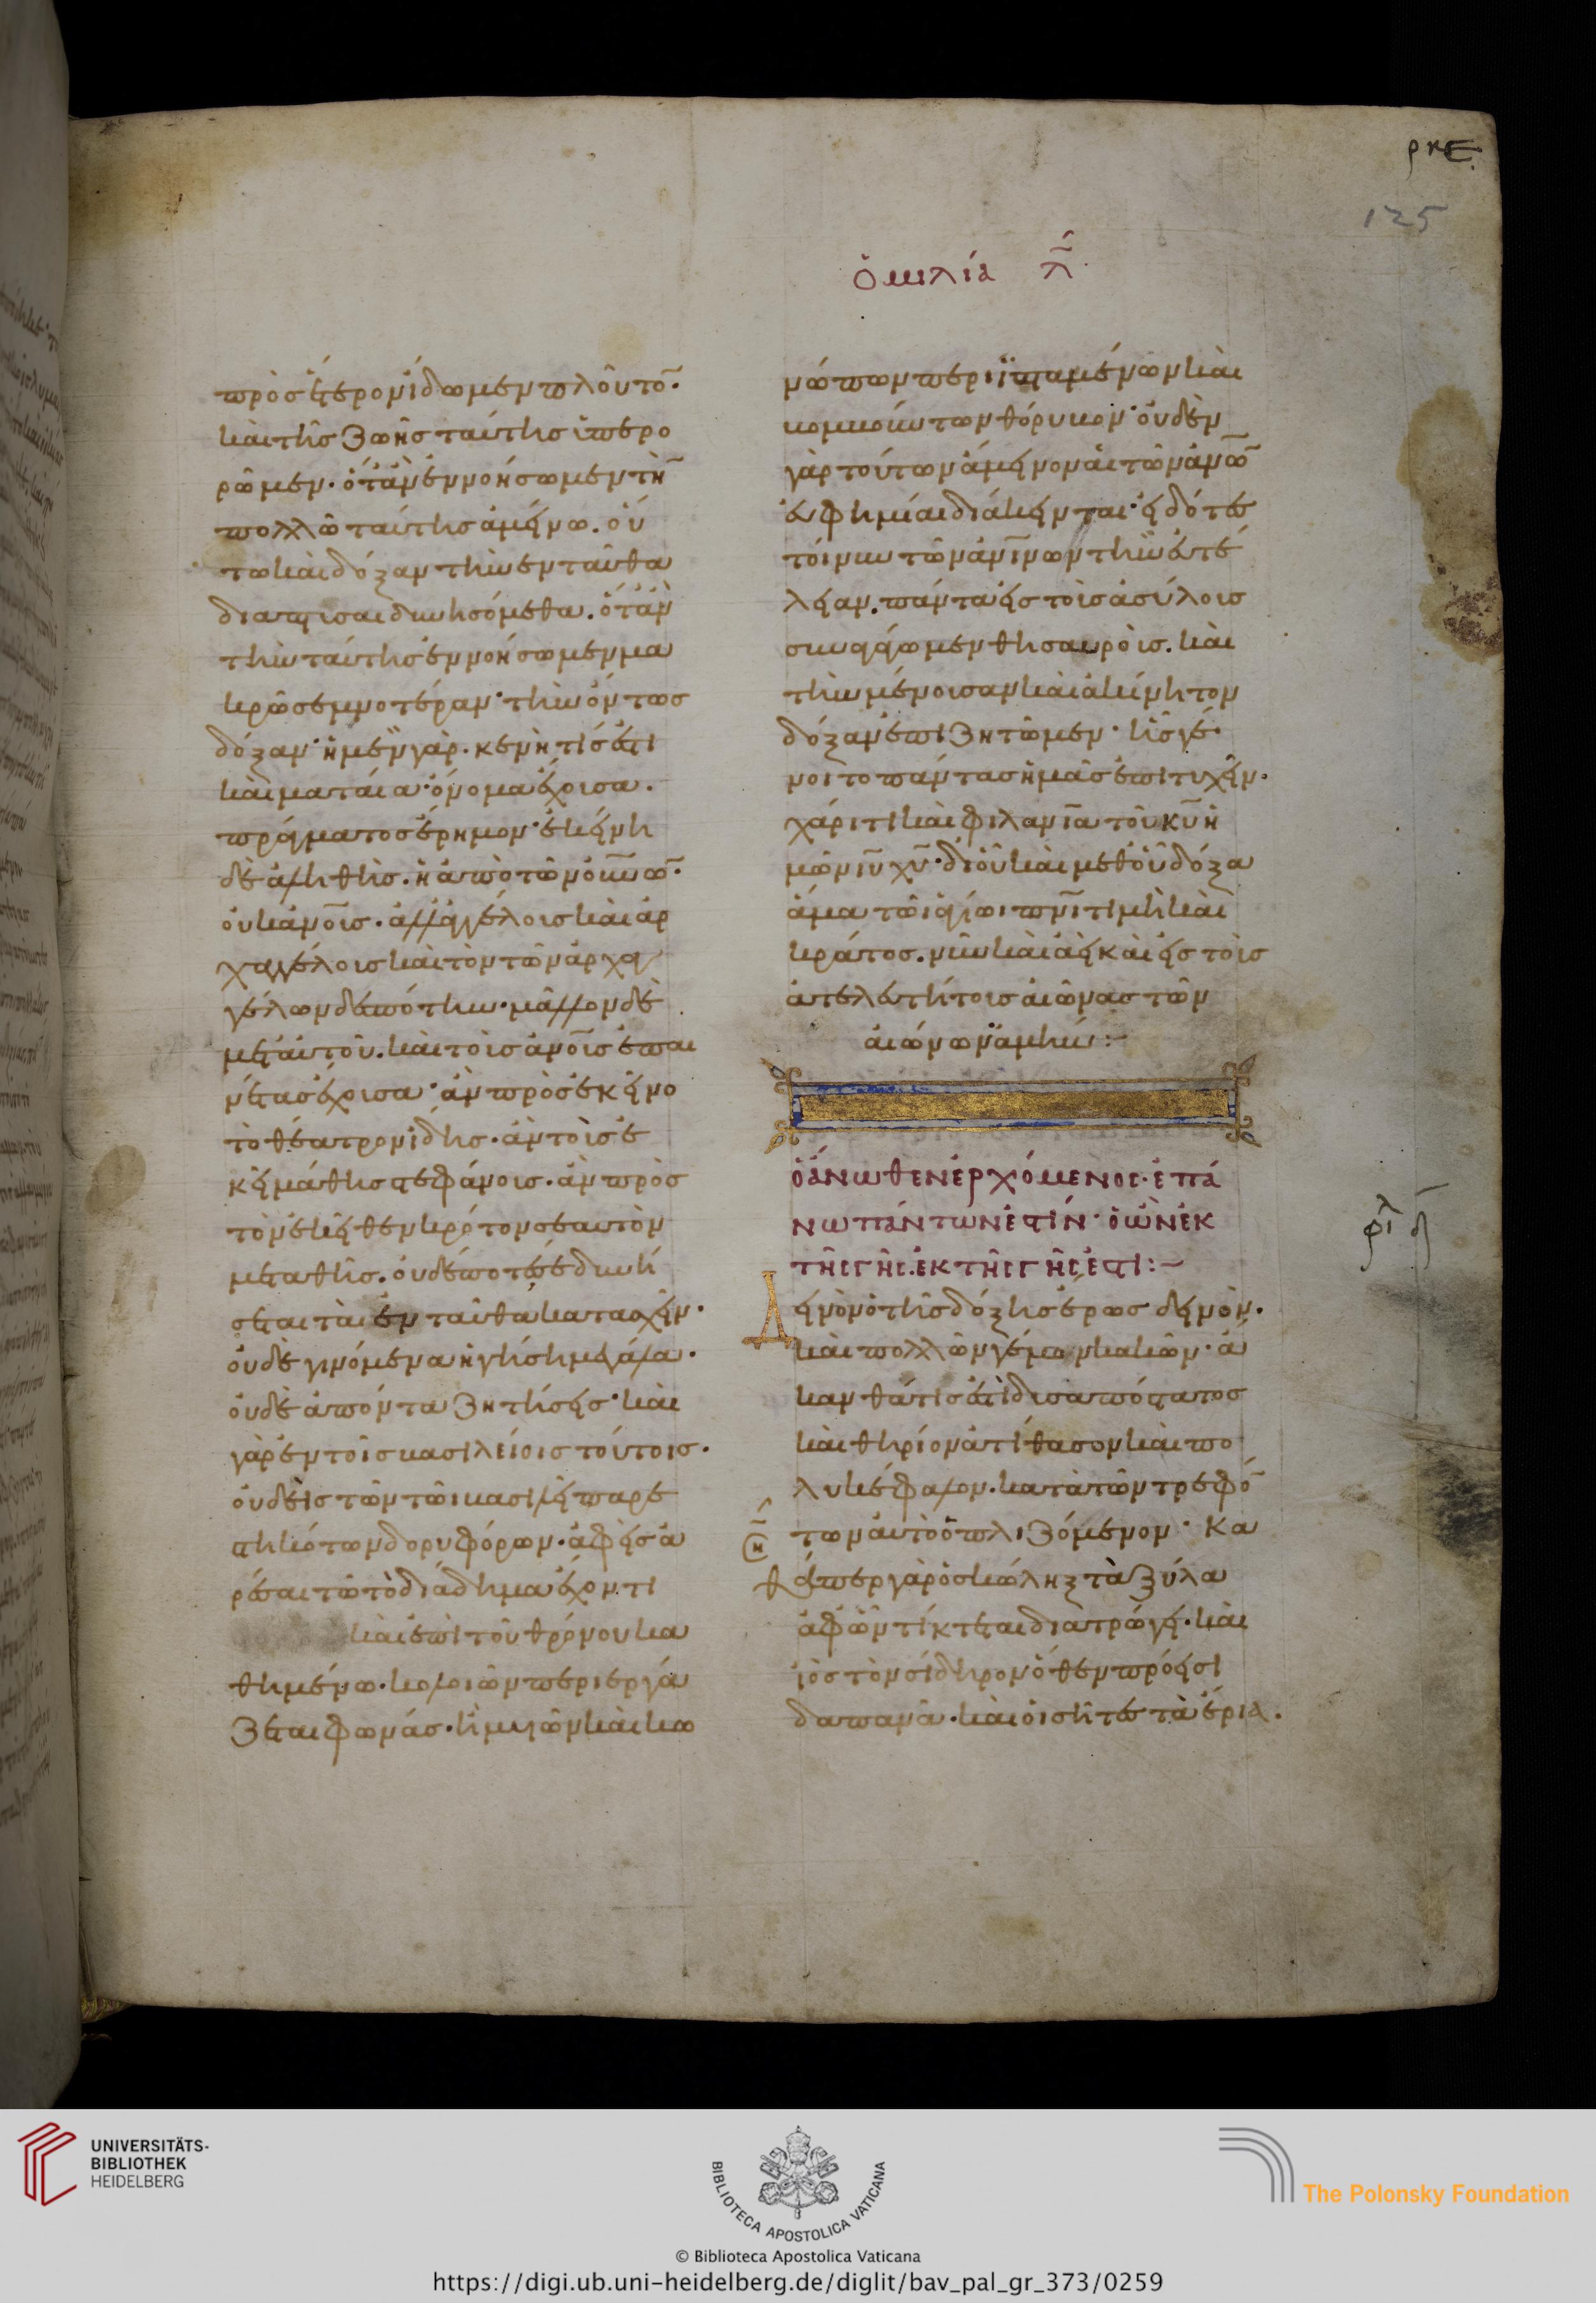 ρκε.
125
ὁμιλία λ̅
πρὸς ἕτερον ἴδωμεν πλοῦτο̅·
καὶ τῆς ζωῆς ταύτης ὑπερο
ρῶμεν· ὅτἂν ἐννοήσωμεν τὴ̅
πολλῶ ταύτης ἀμείνω. οὕ
τω καὶ δόξαν τὴν ἐνταῦθα
διαπτύσαι δυνησόμεθα. ὅτἂν
τὴν ταύτης ἐννοήσωμεν μα
κρῶ σεμνοτέραν· τὴν ὄντως
δόξαν· ἡ μὲν γὰρ. κενή τίς ἐστι
καὶ ματαία· ὄνομα ἔχουσα.
πράγματος ἔρημον· ἐκείνη
δὲ ἀληθὴς. ἡ ἀπὸ τῶν οὐ̅ν̅ω̅·
οὐκ ἀν̅οις· ἀλλ' ἀγγέλοις καὶ ἀρ
χαγγέλοις καὶ τὸν τῶν ἀρχαγ
γέλων δεσπότην· μᾶλλον δὲ
μετ' αὐτοῦ. καὶ τοὺς ἀν̅ους ἐπαι
νέτας ἔχουσα· ἂν πρὸς ἐκεῖνο
τὸ θέατρον ἴδης· ἂν τοὺς ἐ
κεῖ μάθης στεφάνους· ἂν πρὸς
τὸν ἐκεῖθεν κρότον σεαυτὸν
μεταθῆς. οὐδέποτέ σε δυνή
σεται τὰ ἐνταῦθα κατασχεῖν·
οὐδὲ γινόμενα ἡγήση μεγάλα·
οὐδὲ ἀπόντα ζητήσεις· καὶ
γὰρ ἐν τοῖς βασιλείοις τούτοις·
οὐδεὶς τῶν τῶι βασιλεῖ παρε
στηκότων δορυφόρων· ἀφεὶς ἀ
ρέσαι τῶ τὸ διάδημα ἔχοντι
καὶ ἐπὶ τοῦ θρόνου κα
θημένω· κολοιῶν περιεργά
ζεται φωνάς· ἢ μυιῶν καὶ κω
νώπων περιϊπταμένων καὶ
βομβούντων θόρυβον· οὐδὲν
γὰρ τούτων ἄμεινον αἱ τῶν ἀν̅ω̅
εὐφημίαι διάκεινται· εἰδότες
τοίνυν τῶν ἀν̅ίνων τὴν εὐτέ
λειαν. πάντα εἰς τοὺς ἀσύλους
συναγάγωμεν θησαυρούς. καὶ
τὴν μένουσαν καὶ ἀκίνητον
δόξαν ἐπιζητῶμεν· ἧς γέ
νοιτο πάντας ἡμᾶς ἐπιτυχεῖν·
χάριτι καὶ φιλαν̅ια τοῦ κ̅υ̅ ἡ
μῶν ι̅υ̅ χ̅υ̅· δι' οὗ καὶ μεθ' οὗ δόξα
ἅμα τῶι ἁγίωι πν̅ι τιμὴ καὶ
κράτος. νῦν καὶ ἀεὶ καὶ εἰς τοὺς
ἀτελευτήτους αἰῶνας τῶν
αἰώνων ἀμήν:–
ὁ ἄνωθεν ἐρχόμενος· ἐπά
νω πάντων ἐστίν· ὁ ὢν ἐκ
τῆς γῆς. ἐκ τῆς γῆς ἐστι:–
Δεινὸν ὁ τῆς δόξης ἔρως δεινὸν·
καὶ πολλῶν γέμων κακῶν· ἄ
κανθά τίς ἐστι δυσαπόσπατος
καὶ θηρίον ἀτίθασον καὶ πο
λυκέφαλον· κατὰ τῶν τρεφό̅
των αὐτὸ ὁπλιζόμενον· Κα
θάπερ γὰρ ὁ σκώληξ τὰ ξύλα
ἀφ' ὧν τίκτεται διατρώγει· καὶ
ἰὸς τὸν σίδηρον ὅθεν πρόεισι
δαπανᾶ· καὶ οἱ σῆτες τὰ ἔρια·
UNIVERSITÄTS-
BIBLIOTHEK
HEIDELBERG
BIBLIOTECA APOSTOLICA VATICANA
The Polonsky Foundation
© Biblioteca Apostolica Vaticana
https://digi.ub.uni-heidelberg.de/diglit/bav_pal_gr_373/0259